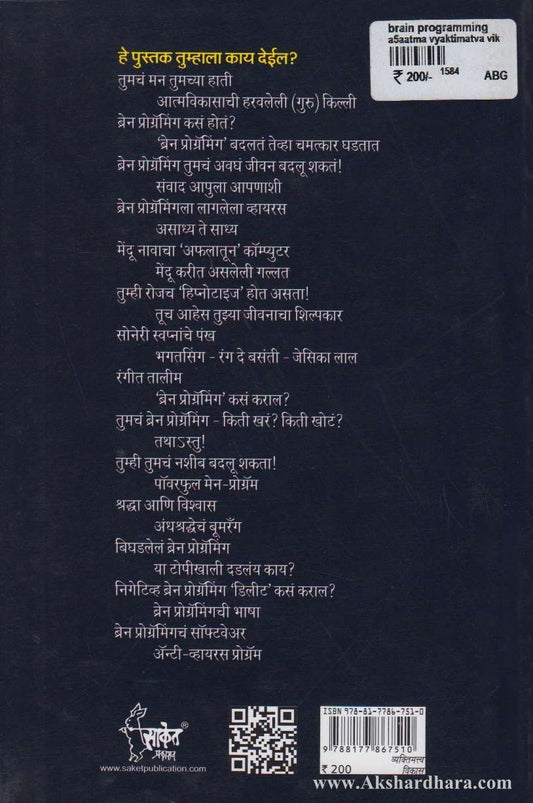 brain programming
a5aatma vyaktimatva vik
₹ 200/- 1584 ABG
हे पुस्तक तुम्हाला काय देईल?
तुमचं मन तुमच्या हाती
आत्मविकासाची हरवलेली (गुरु) किल्ली
ब्रेन प्रोग्रॅमिंग कसं होतं?
‘ब्रेन प्रोग्रॅमिंग’ बदलतं तेव्हा चमत्कार घडतात
ब्रेन प्रोग्रॅमिंग तुमचं अवघं जीवन बदलू शकतं!
संवाद आपुला आपणाशी
ब्रेन प्रोग्रॅमिंगला लागलेला व्हायरस
असाध्य ते साध्य
मेंदू नावाचा ‘अफलातून’ कॉम्प्युटर
मेंदू करीत असलेली गल्लत
तुम्ही रोजच ‘हिप्नोटाइज’ होत असता!
तूच आहेस तुझ्या जीवनाचा शिल्पकार
सोनेरी स्वप्नांचे पंख
भगतसिंग - रंग दे बसंती - जेसिका लाल
रंगीत तालीम
‘ब्रेन प्रोग्रॅमिंग’ कसं कराल?
तुमचं ब्रेन प्रोग्रॅमिंग - किती खरं? किती खोटं?
तथाऽस्तु!
तुम्ही तुमचं नशीब बदलू शकता!
पॉवरफुल मेन-प्रोग्रॅम
श्रद्धा आणि विश्वास
अंधश्रद्धेचं बूमरँग
बिघडलेलं ब्रेन प्रोग्रॅमिंग
या टोपीखाली दडलंय काय?
निगेटिव्ह ब्रेन प्रोग्रॅमिंग ‘डिलीट’ कसं कराल?
ब्रेन प्रोग्रॅमिंगची भाषा
ब्रेन प्रोग्रॅमिंगचं सॉफ्टवेअर
अँन्टी-व्हायरस प्रोग्रॅम
साकेत®
प्रकाशन
www.saketpublication.com
ISBN 978-81-7786-751-0
9788177867510
₹ 200
व्यक्तिमत्त्व
विकास
www.Akshardhara.com